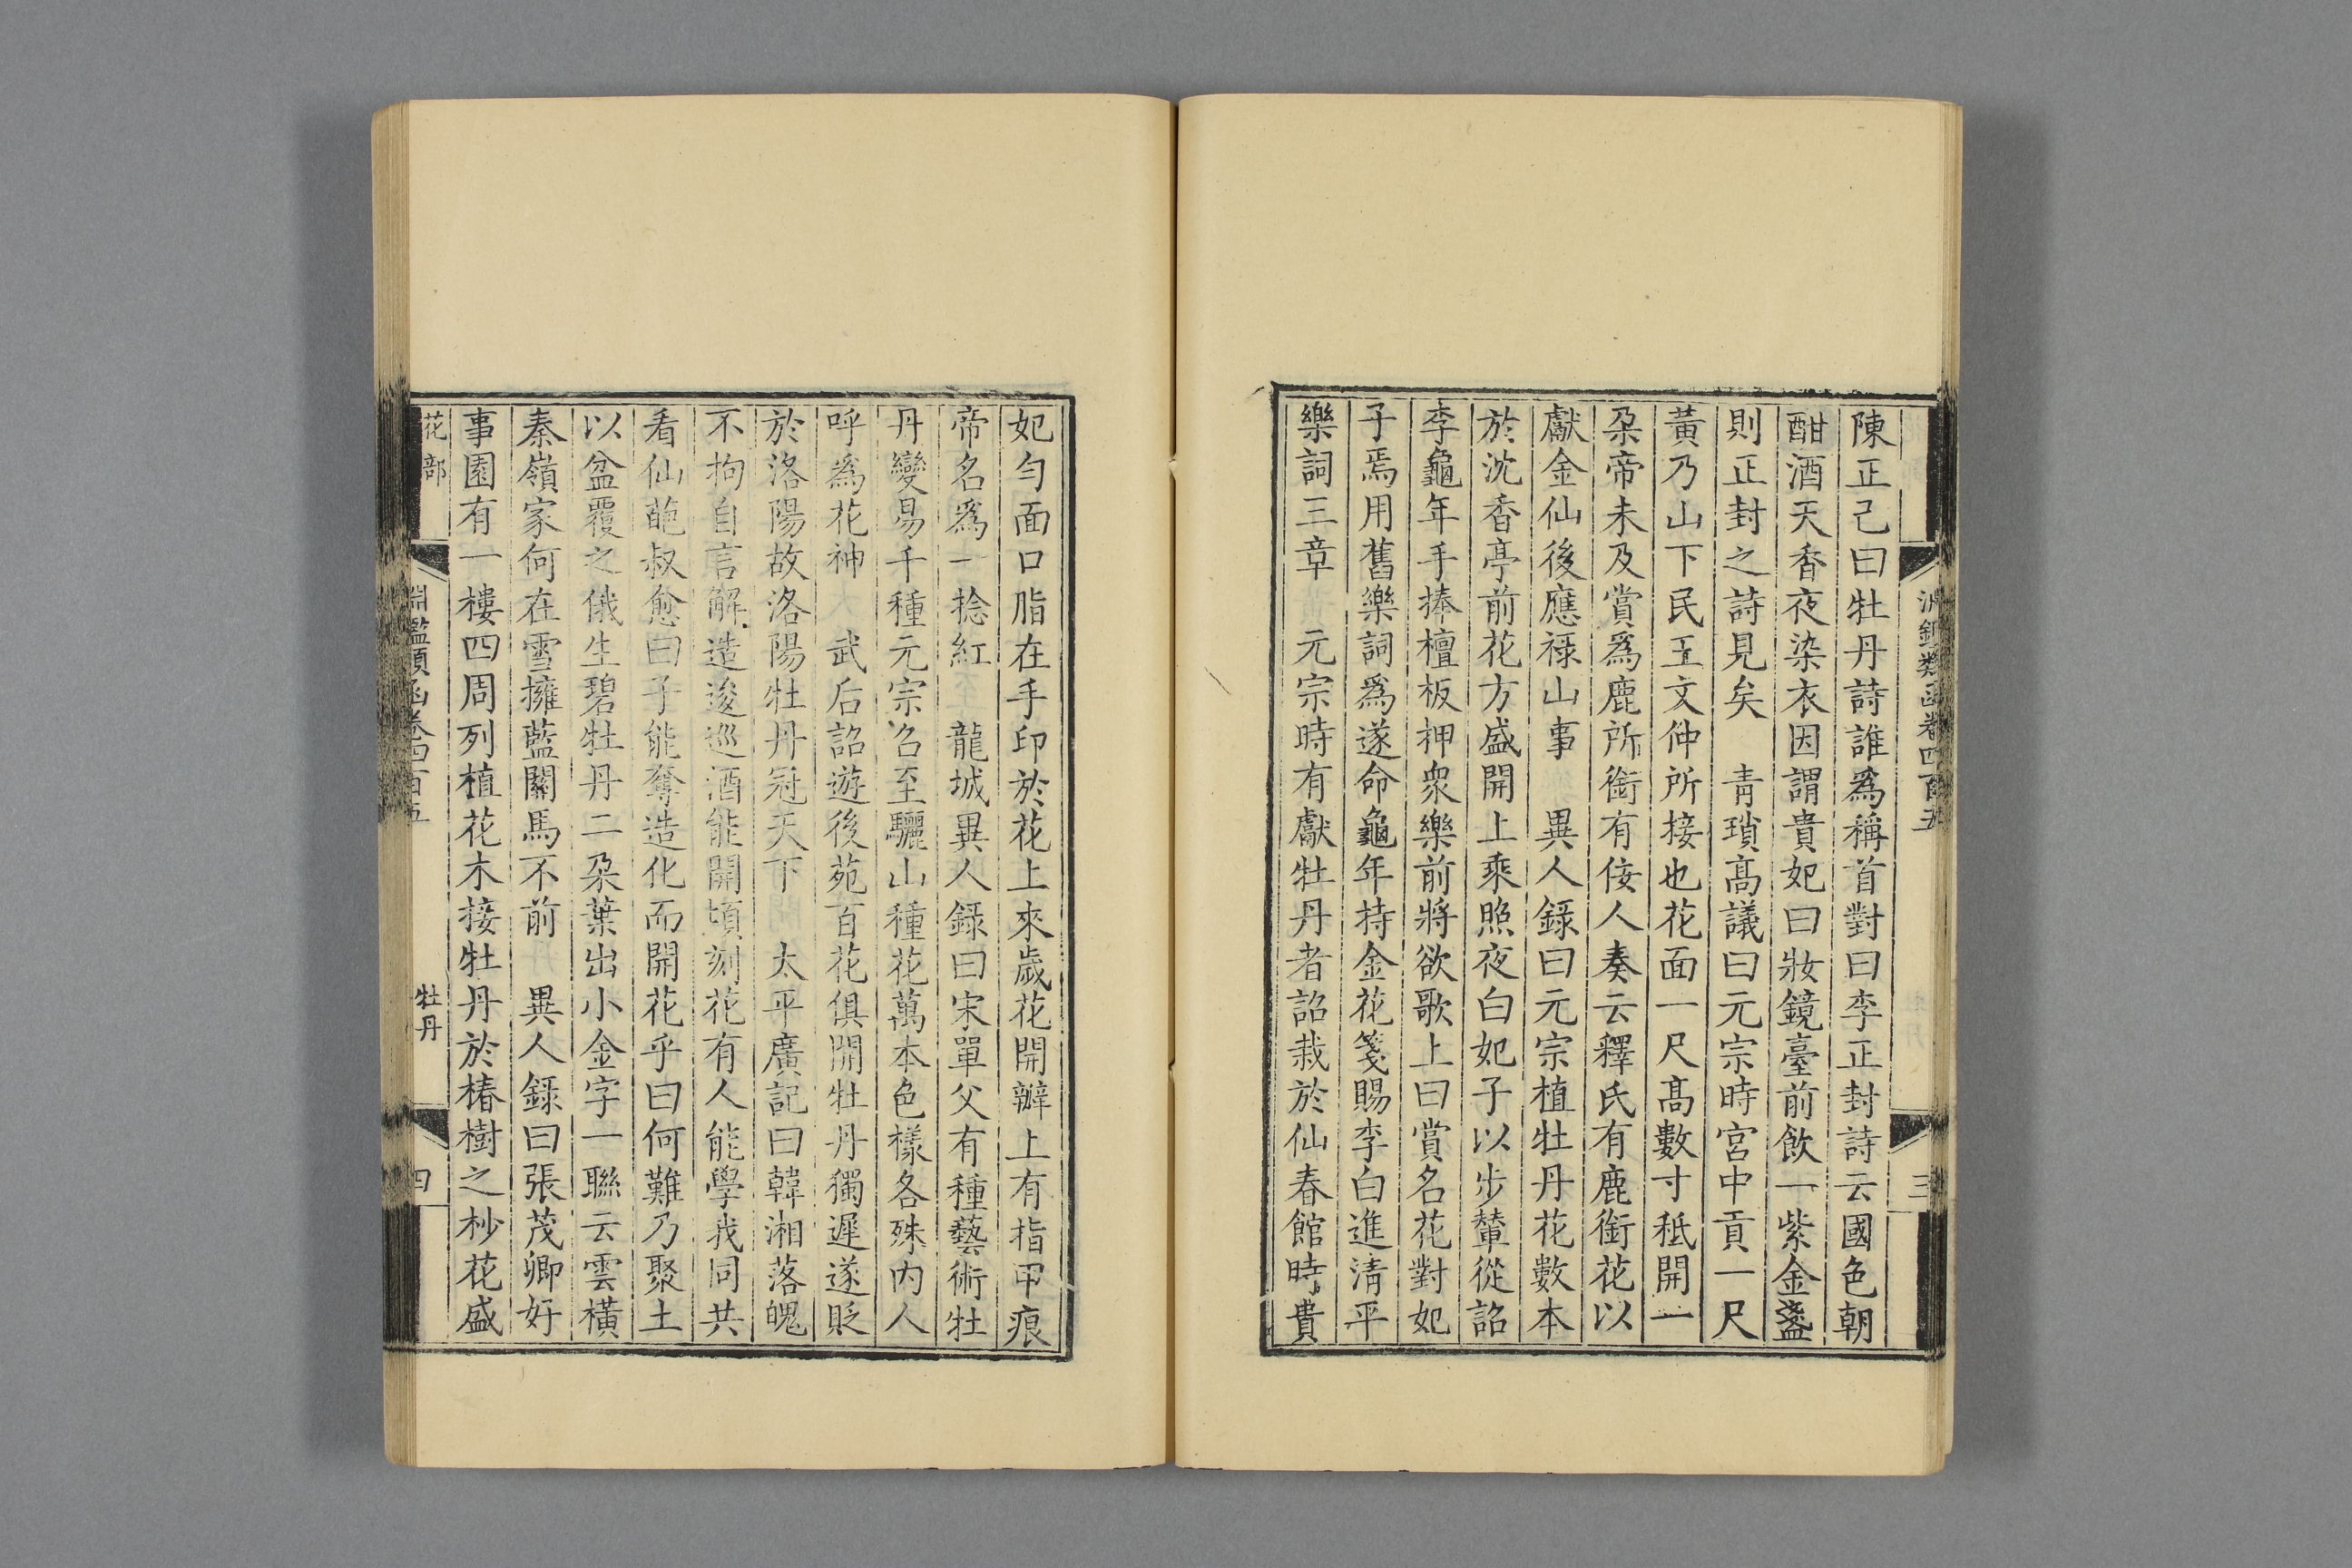 淵鑑類函卷四百五
三
陳正己曰牡丹詩誰爲稱首對曰李正封詩云國色朝
酣酒天香夜染衣因謂貴妃曰妝鏡臺前飲一紫金盞
則正封之詩見矣　青瑣髙議曰元宗時宮中貢一尺
黃乃山下民王文仲所接也花面一尺髙數寸秖開一
朶帝未及賞爲鹿所銜有佞人奏云釋氏有鹿銜花以
獻金仙後應祿山事　異人錄曰元宗植牡丹花數本
於沈香亭前花方盛開上乘照夜白妃子以步輦從詔
李龜年手捧檀板押衆樂前將欲歌上曰賞名花對妃
子焉用舊樂詞爲遂命龜年持金花箋賜李白進淸平
樂詞三章　元宗時有獻牡丹者詔栽於仙春館時貴
妃勻面口脂在手印於花上來歲花開瓣上有指甲痕
帝名爲一捻紅　龍城異人錄曰宋單父有種藝術牡
丹變易千種元宗召至驪山種花萬本色樣各殊內人
呼爲花神　武后詔遊後苑百花俱開牡丹獨遲遂貶
於洛陽故洛陽牡丹冠天下　太平廣記曰韓湘落魄
不拘自言解造逡巡酒能開頃刻花有人能學我同共
看仙葩叔愈曰子能奪造化而開花乎曰何難乃聚土
以盆覆之俄生碧牡丹二朶葉出小金字一聯云雲橫
秦嶺家何在雪擁藍關馬不前　異人錄曰張茂卿好
事園有一樓四周列植花木接牡丹於椿樹之杪花盛
花部
淵鑑類函卷四百五
牡丹
四